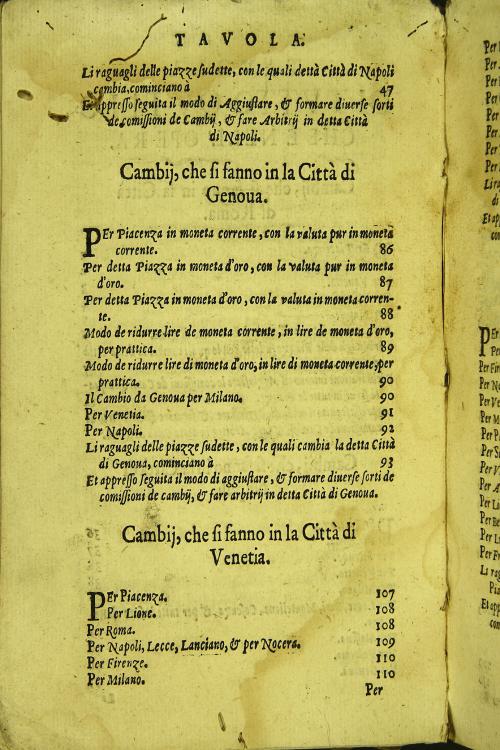 TAVOLA.
Li raguagli delle piazze sudette, con le quali dettà Città di Napoli
cambia, cominciano à 47
Et appresso seguita il modo di Aggiustare, & formare diuerse sorti
de comissioni de Cambij, & fare Arbitrij in detta Città
di Napoli.
Cambij, che si fanno in la Città di
Genoua.
PEr Piacenza in moneta corrente, con la valuta pur in moneta
corrente. 86
Per detta Piazza in moneta d'oro, con la valuta pur in moneta
d'oro. 87
Per detta Piazza in moneta d'oro, con la valuta in moneta corren-
te. 88
Modo de ridurre lire de moneta corrente, in lire de moneta d'oro,
per prattica. 89
Modo de ridurre lire di moneta d'oro, in lire di moneta corrente, per
prattica. 90
Il Cambio da Genoua per Milano. 90
Per Venetia. 91
Per Napoli. 92
Li raguagli delle piazze sudette, con le quali cambia la detta Città
di Genoua, cominciano à 93
Et appresso seguita il modo di aggiustare, & formare diuerse sorti de
comissioni de cambij, & fare arbitrij in detta Città di Genoua.
Cambij, che si fanno in la Città di
Venetia.
PEr Piacenza. 107
Per Lione. 108
Per Roma. 108
Per Napoli, Lecce, Lanciano, & per Nocera. 109
Per Firenze. 110
Per Milano. 110
Per